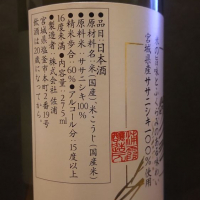 宮城県産ササニシキ100%使用
●品目:日本酒
●原材料名:米(国産)、米こうじ(国産米)
●原料米:ササニシキ100%
●精米歩合:60%●アルコール分:15度以上
16度未満●内容量:275ml
●製造者:株式会社 佐浦
宮城県塩釜市本町2番19号
飲酒は20歳になってから。